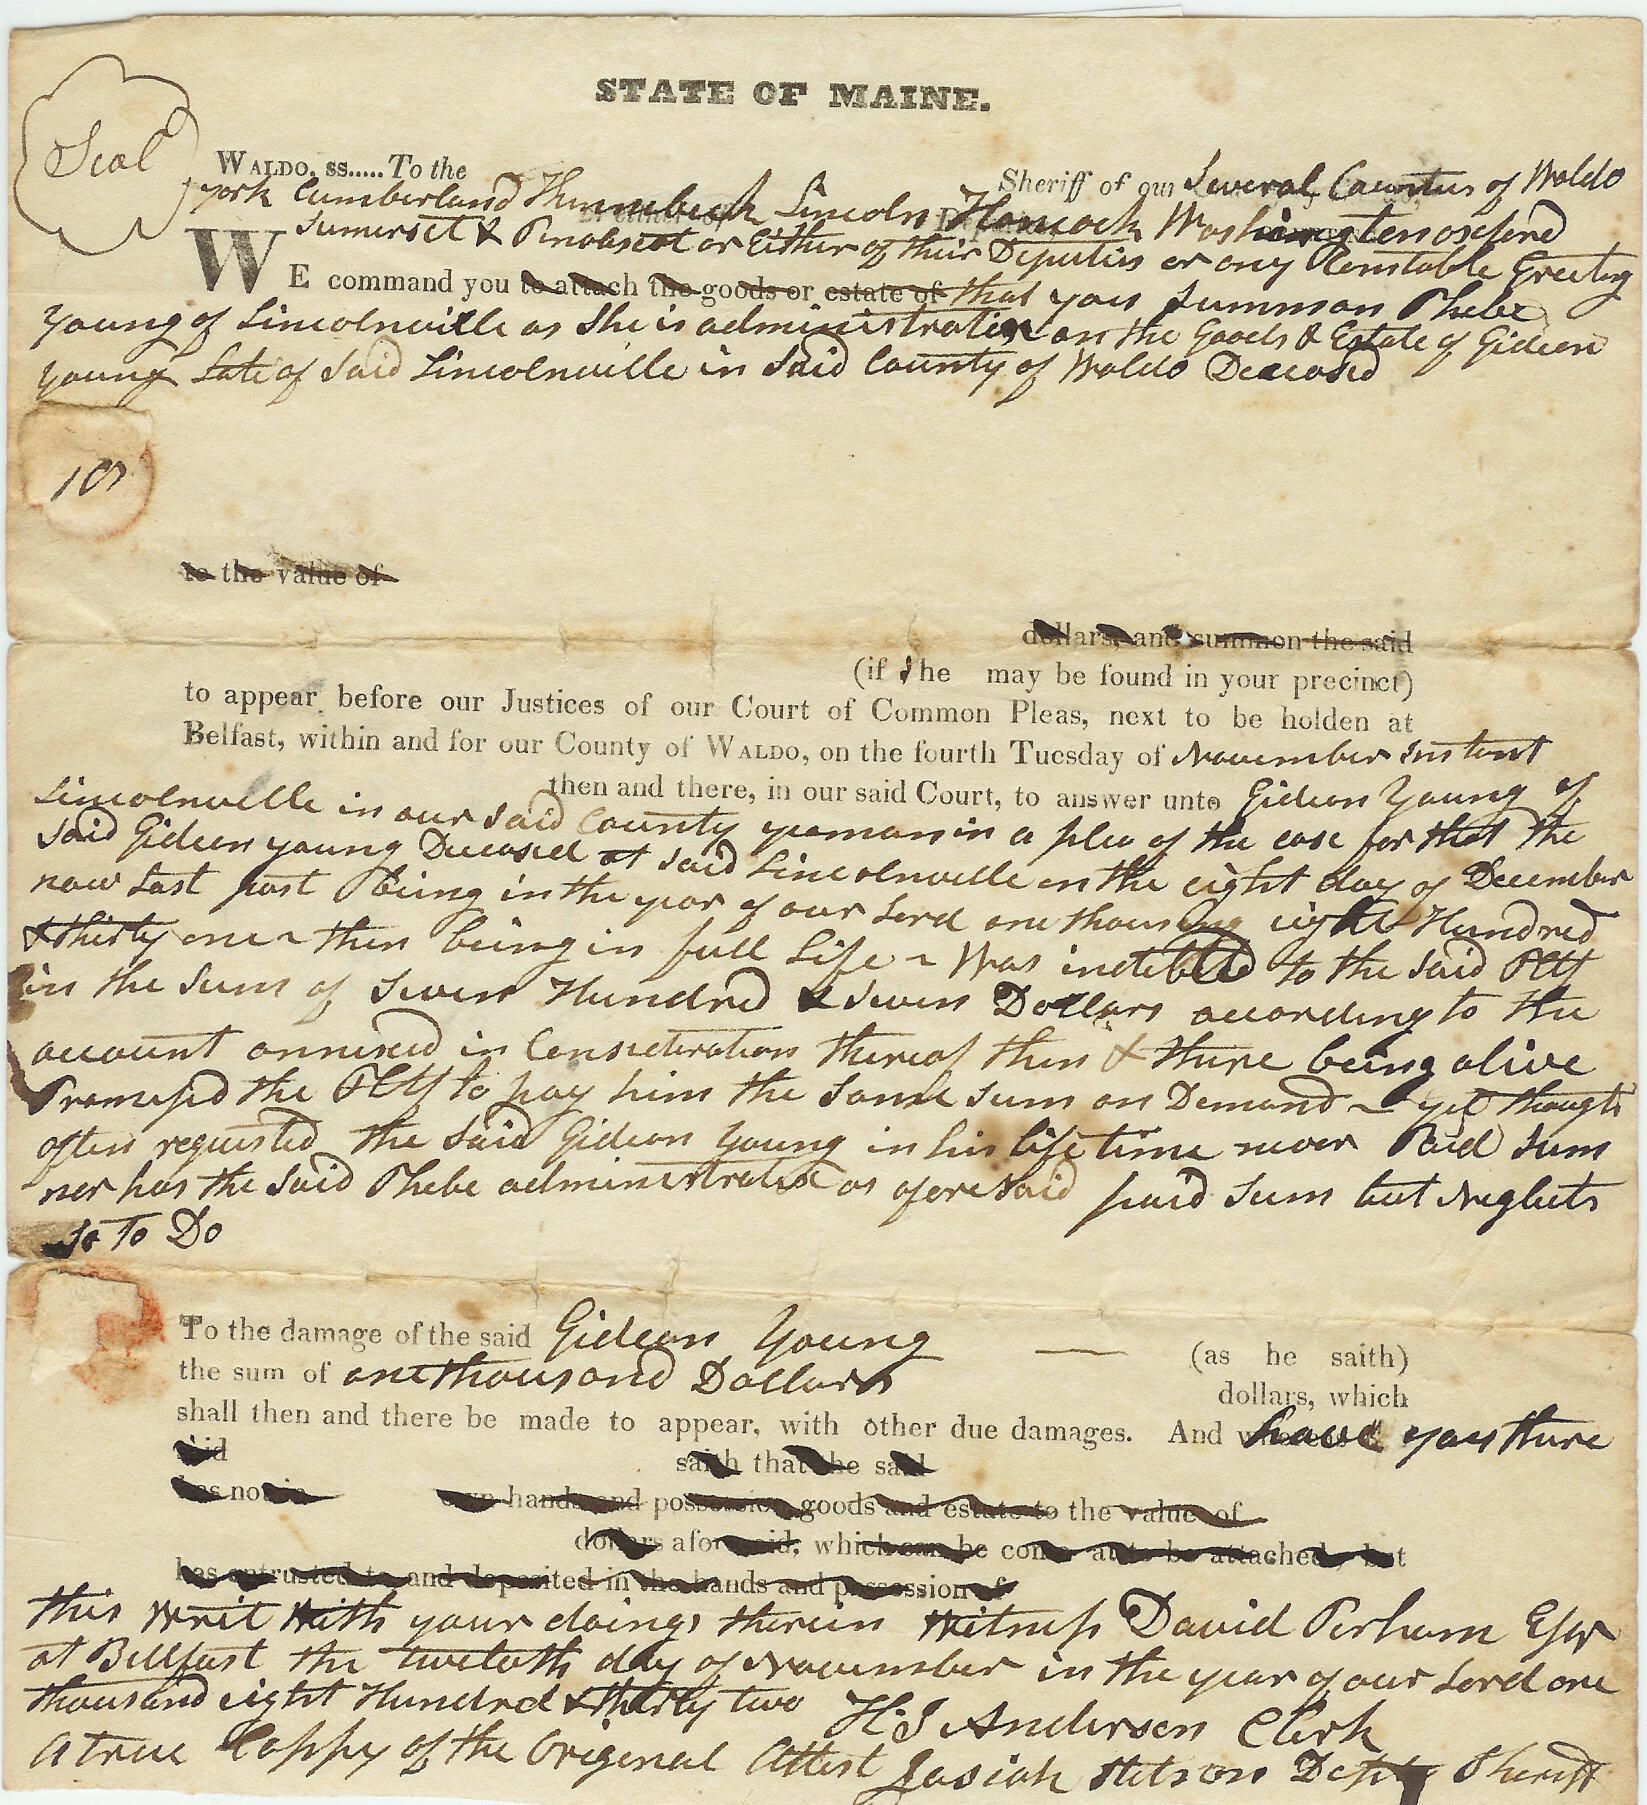 STATE OF MAINE.
Seal
WALDO, ss..... To the Sheriff of our Several Counties of Waldo
york Cumberland Kennebeck Lincoln Hancock Washington oxford
Sumerset & Penobscot or Either of their Deputies or any Constable Greeting
WE command you to attach the goods or estate of that you Summon Phebe
Young of Lincolnville as She is administratrix on the Goods & Estate of Gideon
young Late of Said Lincolnville in Said County of Waldo Deceased
107
to the value of
dollars, and summon the said
(if She may be found in your precinct)
to appear before our Justices of our Court of Common Pleas, next to be holden at
Belfast, within and for our County of WALDO, on the fourth Tuesday of November Instant
then and there, in our said Court, to answer unto Gideon Young of
Lincolnville in our Said County yeoman in a plea of the case for that the
Said Gideon young Deceased at Said Lincolnville on the eight day of December
now Last past being in the year of our Lord one thousand eight Hundred
& thirty one ~ then being in full Life ~ Was indebted to the Said Plff
in the Sum of Seven Hundred & Seven Dollars according to the
account annexed in Consideration thereof then & there being alive
Promised the Plff to pay him the Same Sum on Demand ~ yet though
often requested the Said Gideon Young in his life time never Paid Sum
nor has the Said Phebe administratrix as aforesaid paid Sum but Neglects
So To Do
To the damage of the said Gideon Young (as he saith)
the sum of one thousand Dollars dollars, which
shall then and there be made to appear, with other due damages. And whereas have you there
said saith that the said
has not in own hands and possession goods and estate to the value of
dollars aforesaid, which can be come at to be attached, but
has entrusted to and deposited in the hands and possession of
this Writ With your doings therein Witness David Perham Esqr
at Bellfast the twelveth day of November in the year of our Lord one
thousand eight Hundred & thirty two H. J Anderson Clerk
A true Coppy of the Original Attest Josiah Stetson Depty Sheriff